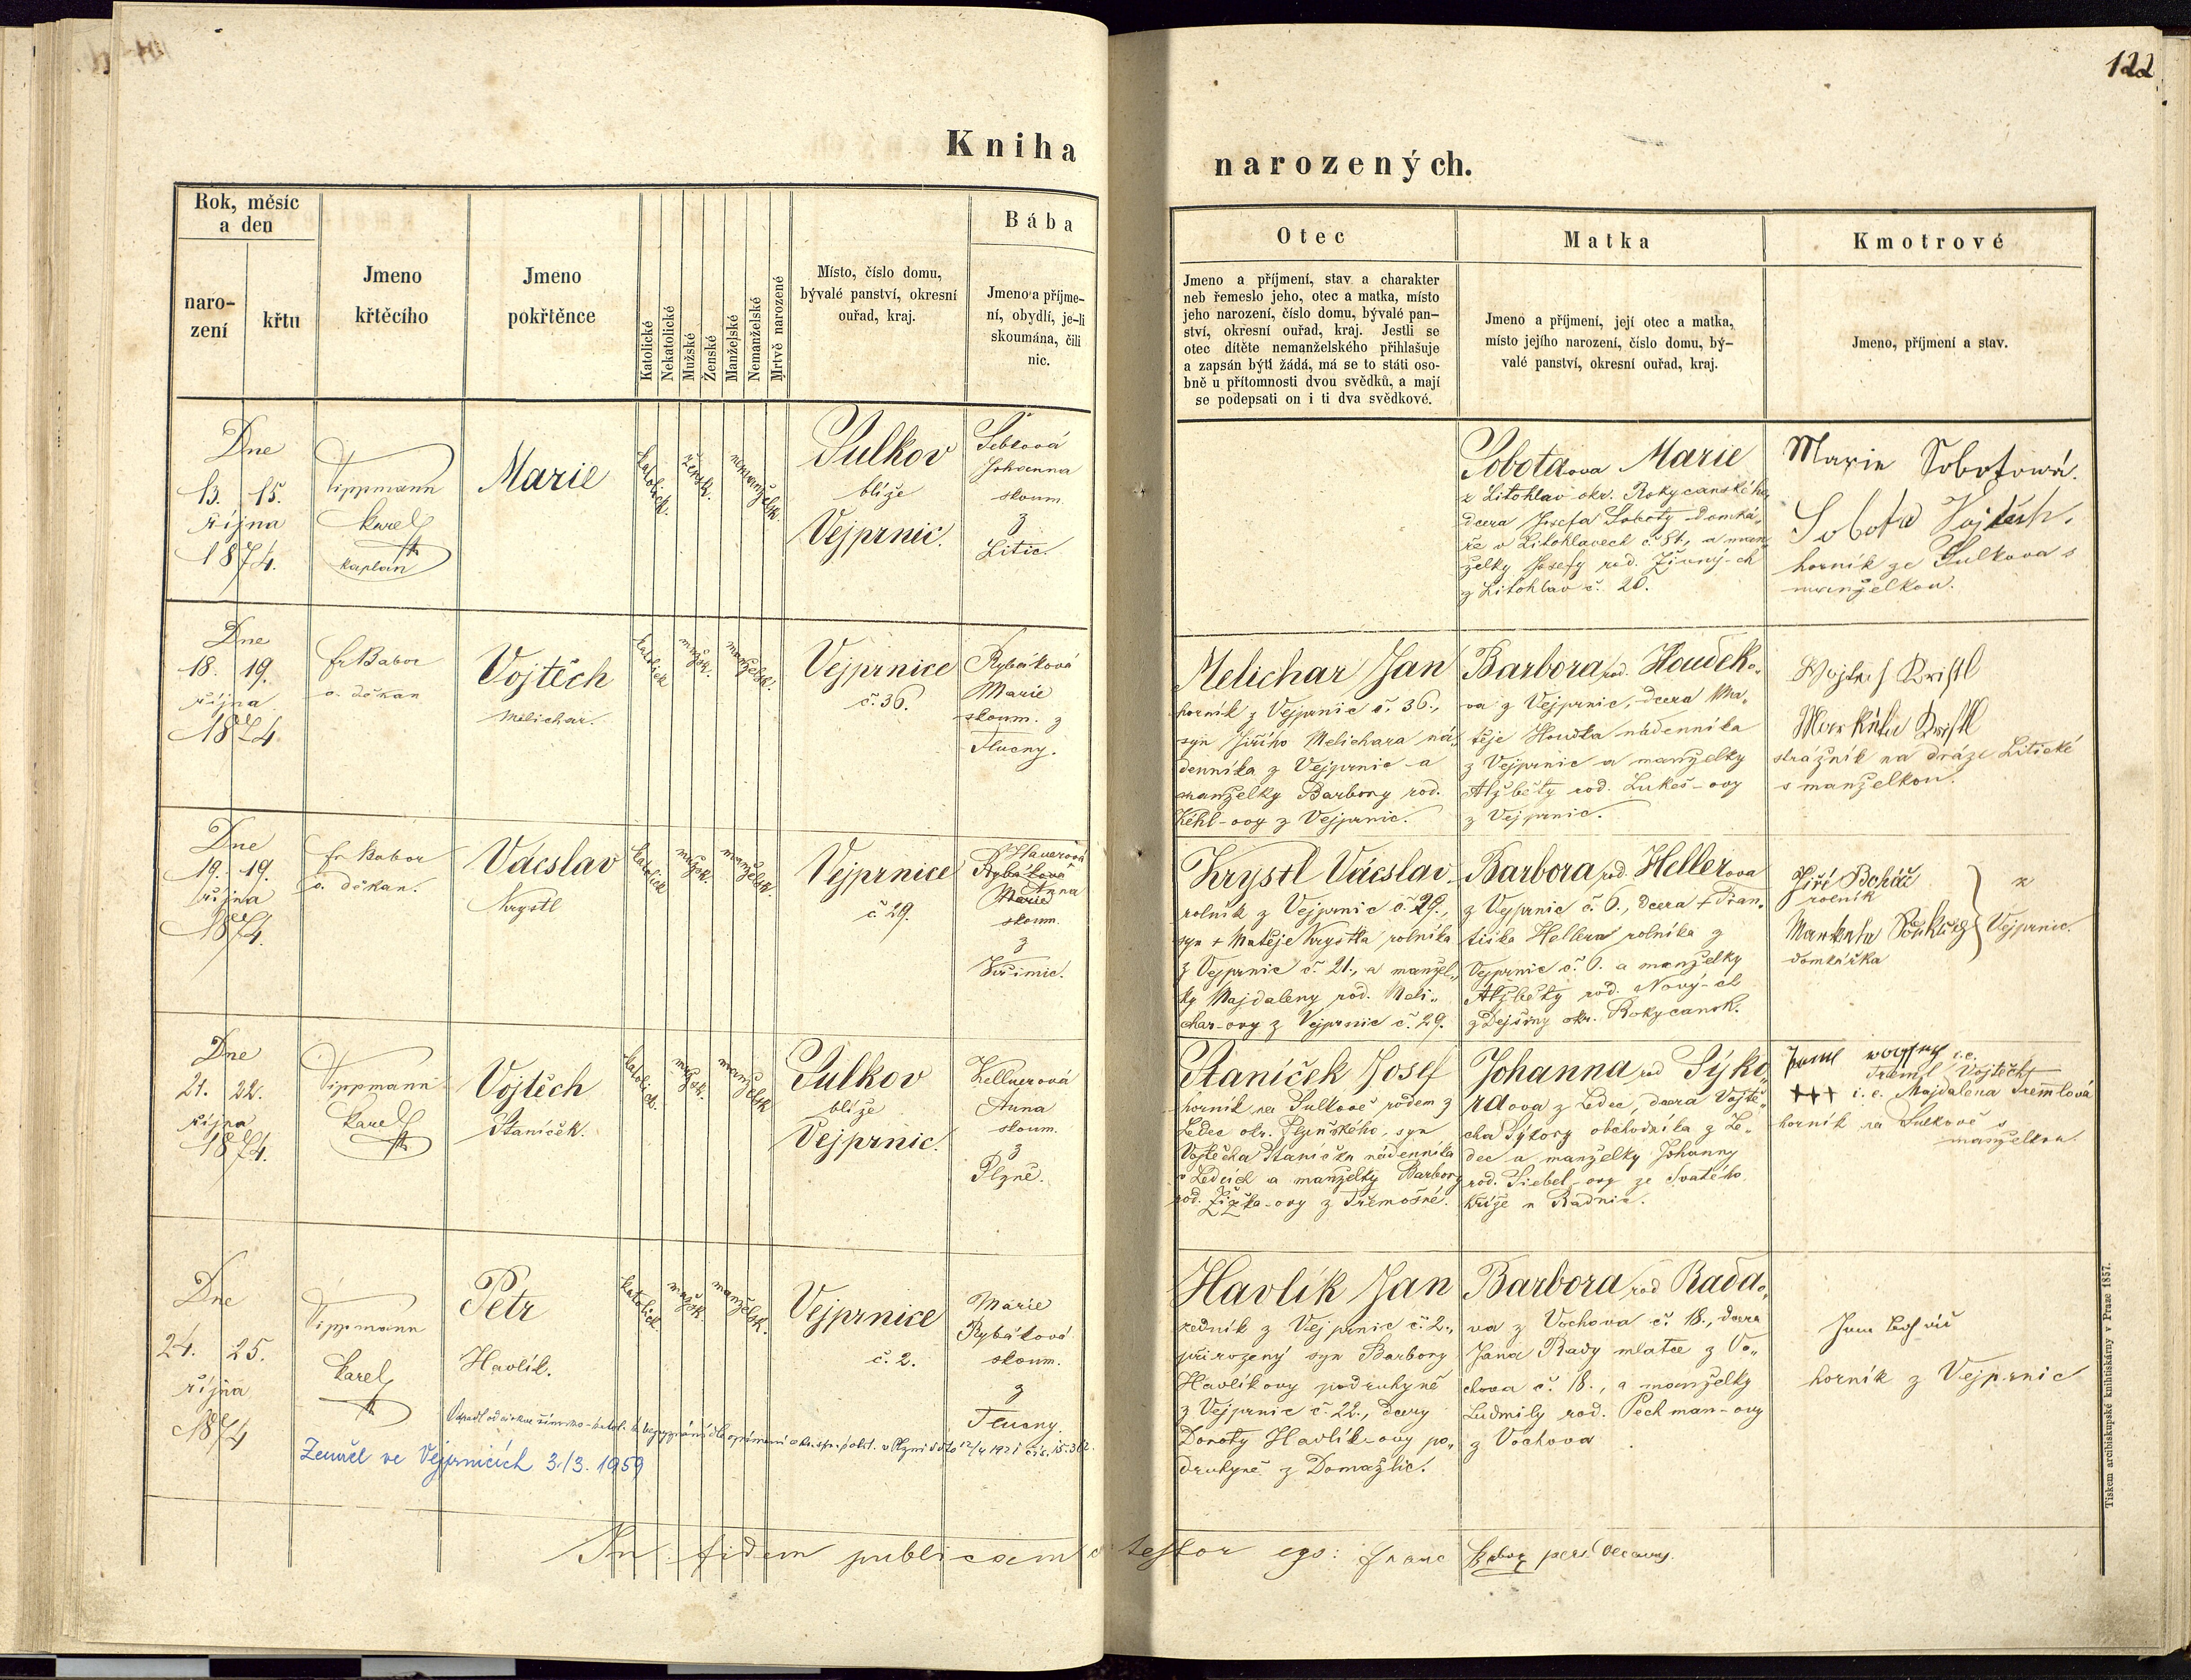 122
Kniha
narozených.
Rok, měsíc
a den
naro-
zení
křtu
Jmeno
křtěcího
Jmeno
pokřtěnce
Katolické
Nekatolické
Mužské
Ženské
Manželské
Nemanželské
Mrtvě narozené
Místo, číslo domu,
bývalé panství, okresní
ouřad, kraj.
Bába
Jmeno a příjme-
ní, obydlí, je-li
skoumána, čili
nic.
Otec
Jmeno a příjmení, stav a charakter
neb řemeslo jeho, otec a matka, místo
jeho narození, číslo domu, bývalé pan-
ství, okresní ouřad, kraj. Jestli se
otec dítěte nemanželského přihlašuje
a zapsán býti žádá, má se to státi oso-
bně u přítomnosti dvou svědků, a mají
se podepsati on i ti dva svědkové.
Matka
Jmeno a příjmení, její otec a matka,
místo jejího narození, číslo domu, bý-
valé panství, okresní ouřad, kraj.
Kmotrové
Jmeno, příjmení a stav.
Dne
13. 15.
října
1874.
Tippmann
Karel
kaplan
Marie
katolick.
žensk.
nemanželsk.
Sulkov
blíže
Vejprnic.
Johanna
skoum.
z
Litic.
Sobotkova Marie
z Litohlav okr. Rokycanského
dcera Josefa Soboty domká„
ře v Litohlavech č. 51, a man„
želky Josefy rod. Živný-ch
z Litohlav č. 20.
Marie Sobotová.
Sobota Vojtěch.
horník ze Sulkova s
manželkou.
Dne
18. 19.
října
1874
fr Babor
o. děkan
Vojtěch
Melichar.
katolick
mužsk.
manželsk.
Vejprnice
č. 36.
Rybáková
Marie
skoum. z
Tlucny.
Melichar Jan
horník z Vejprnic č. 36.,
syn Jiřího Melichara ná„
denníka z Vejprnic a
manželky Barbory rod.
Kéhl-ovy z Vejprnic.
Barbora rod. Houdek„
va z Vejprnic, dcera Ma„
těje Houdka nádenníka
z Vejprnic a manželky
Alžběty rod. Lukeš-ovy
z Vejprnic.
strážník na dráze Litické
s manželkou.
Dne
19. 19.
října
1874.
fr Babor
o. děkan.
Václav
Krystl
katolick
mužsk.
manželsk.
Vejprnice
č. 29.
Hauerová
Rybáková
Anna
Marie
skoum.
z
Křimic.
Krystl Václav
rolník z Vejprnic č. 29.,
syn + Matěje Krystla rolníka
z Vejprnic č. 21., a manžel„
ky Majdaleny rod. Meli„
char-ovy z Vejprnic č. 29.
Barbora rod. Hellerova
z Vejprnic č. 6., dcera + Fran„
tiška Hellera rolníka z
Vejprnic č. 6. a manželky
Alžběty rod. Nový-ch
z Dejšiny okr. Rokycansk.
Jiří Boháč
rolník
z
Vejprnic.
domkářka
Dne
21. 22.
října
1874.
Tippmann
Karel
Vojtěch
Staníček.
katolick.
mužsk.
manželsk
Sulkov
blíže
Vejprnic.
Kellnerová
Anna
skoum.
z
Plzně.
Staníček Josef
horník na Sulkově rodem z
Ledec okr. Plzeňského, syn
Vojtěcha Staníčka nádenníka
v Ledcích a manželky Barbory
rod. Žižka-ovy z Třemošné.
Johanna rod Sýko„
rdova z Ledec, dcera Vojtě„
cha Sýkory obchodníka z Le„
dec a manželky Johanny
rod. Siebel-ovy ze Svatého
Kříže u Radnic.
i. e.
Treml Vojtěch
+++ i. e. Majdalena Tremlová
horník na Sulkově s
manželkou.
Dne
24. 25.
října
1874
Tippmann
Karel
Petr
Havlík.
katolick.
mužsk.
manželsk.
Vejprnice
č. 2.
Marie
Rybáková
skoum.
z
Tlucny.
Zemřel ve Vejprnicích 3./3. 1959
Havlík Jan
zedník z Vejprnic č. 2.,
přirozený syn Barbory
Havlíkovy podruhyně
z Vejprnic č. 22., dcery
Doroty Havlíkovy po„
druhyně z Domažlic.
Barbora rod Rada„
va z Vochova č. 18., dcera
Jana Rady mlatce z Vo„
chova č. 18., a manželky
Ludmily rod. Pechman-ovy
z Vochova.
horník z Vejprnic
In fidem publicam testor ego: Franc Babor
Tiskem arcibiskupské knihtiskárny v Praze 1857.